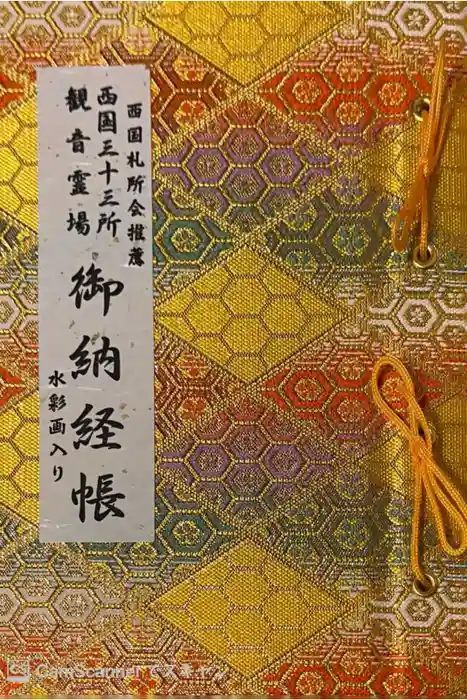 西国札所会推薦
西国三十三所
観音霊場
御納経帳
水彩画入り
CamScannerでスキャン